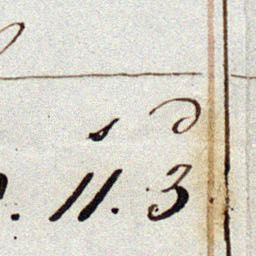 s d
. 11. 3